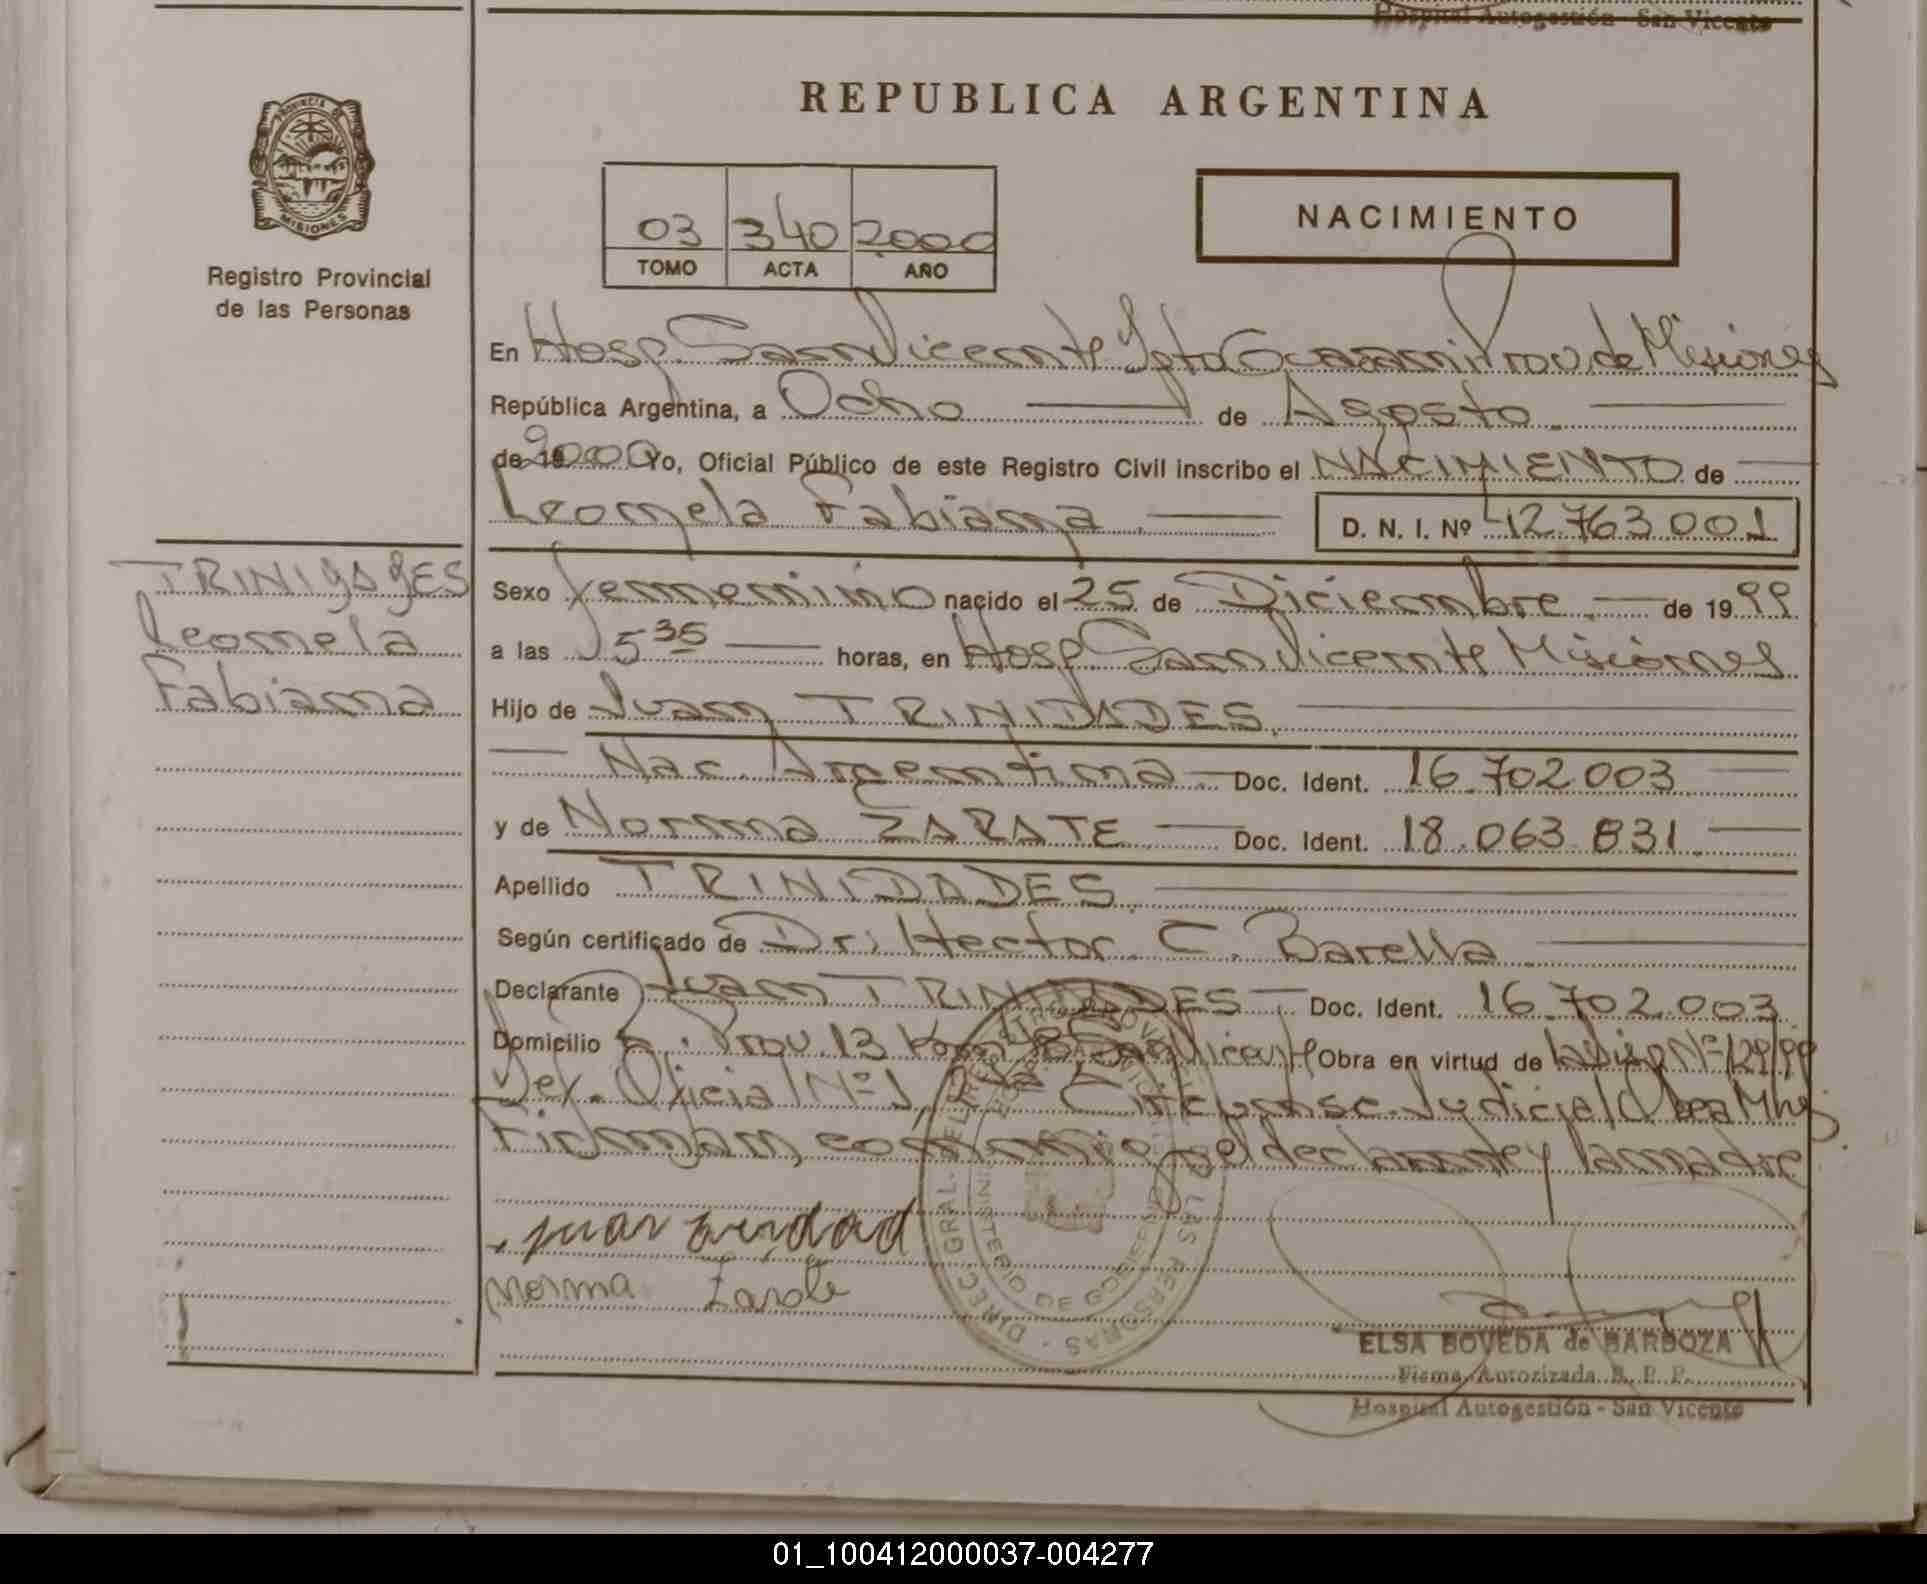 Hospital Autogestión - San Vicente
REPUBLICA ARGENTINA
PROVINCIA DE
MISIONES
Registro Provincial
de las Personas
03 340 2000
TOMO ACTA AÑO
NACIMIENTO
En Hosp. San Vicente Dpto Guarani Prov. de Misiones
República Argentina, a Ocho de Agosto
de 19 2000 Yo, Oficial Público de este Registro Civil inscribo el NACIMIENTO de
Leonela Fabiana D. N. I. Nº 42.763.001
TRINIDADES
Leonela
Fabiana
Sexo femenino nacido el 25 de Diciembre de 19 99
a las 5 35 horas, en Hosp San Vicente Misiones
Hijo de Juan TRINIDADES
Nac. Argentina Doc. Ident. 16.702.003
y de Norma ZARATE Doc. Ident. 18.063.831
Apellido TRINIDADES
Según certificado de Dr. Hector C. Barella
Declarante Juan TRINIDADES Doc. Ident. 16.702.003
Domicilio Prov. 13 Km San Vicente Obra en virtud de Nº 129/99
Def. Oficial Nº 1, Circunsc. Judicial Obera Mnes
Firman conmigo el declarante y la madre
juan
norma Zarate
ELSA BOVEDA de BARBOZA
Firma Autorizada R. P. P.
Hospital Autogestión - San Vicente
MINISTERIO DE GOBIERNO
01_100412000037-004277